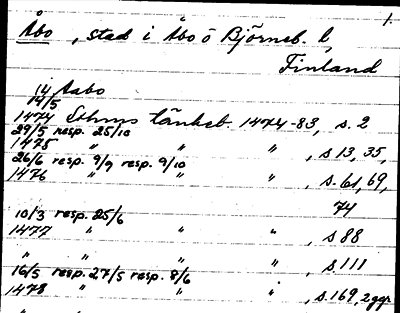 1.
Åbo, stad i Åbo o Björneb. l,
Finland
(4 Aabo
14/5
1474 Sthms tänkeb. 1474-83, s. 2
29/5 resp. 25/10
1475 " " " , s 13, 35,
26/6 resp. 9/9 resp. 9/10
1476 " " " , s. 61, 69,
74
10/3 resp. 25/6
1477 " " " , s 88
" " " " , s 111
16/5 resp. 27/5 resp. 8/6
1478 " " " , s. 169, 2 ggr